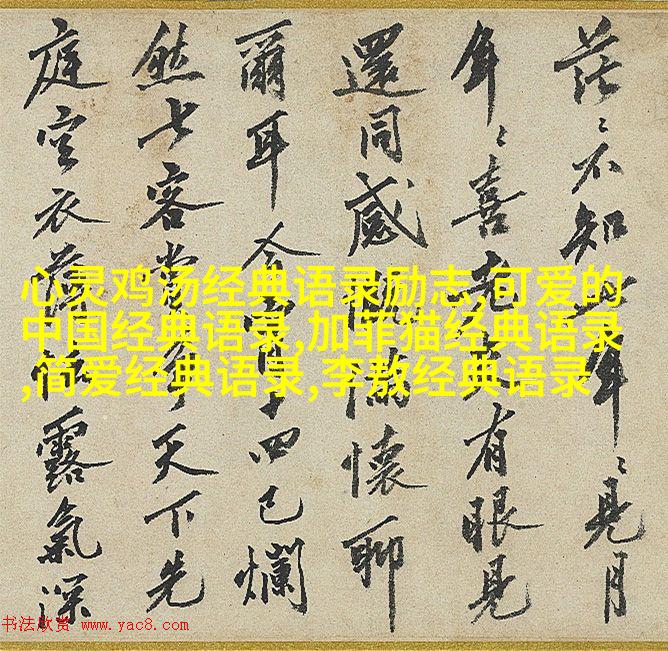 茫〻不知年〻見月
年〻喜老有眼見
還同感慨滿懷聊
爾耳今宵子四已爛
然七客天下先
庭空衣薄怯露氣深
心灵鸡汤经典语录励志,可爱的
中国经典语录,加菲猫经典语录
,简爱经典语录,李敖经典语录
书法欣赏 www.yac8.com